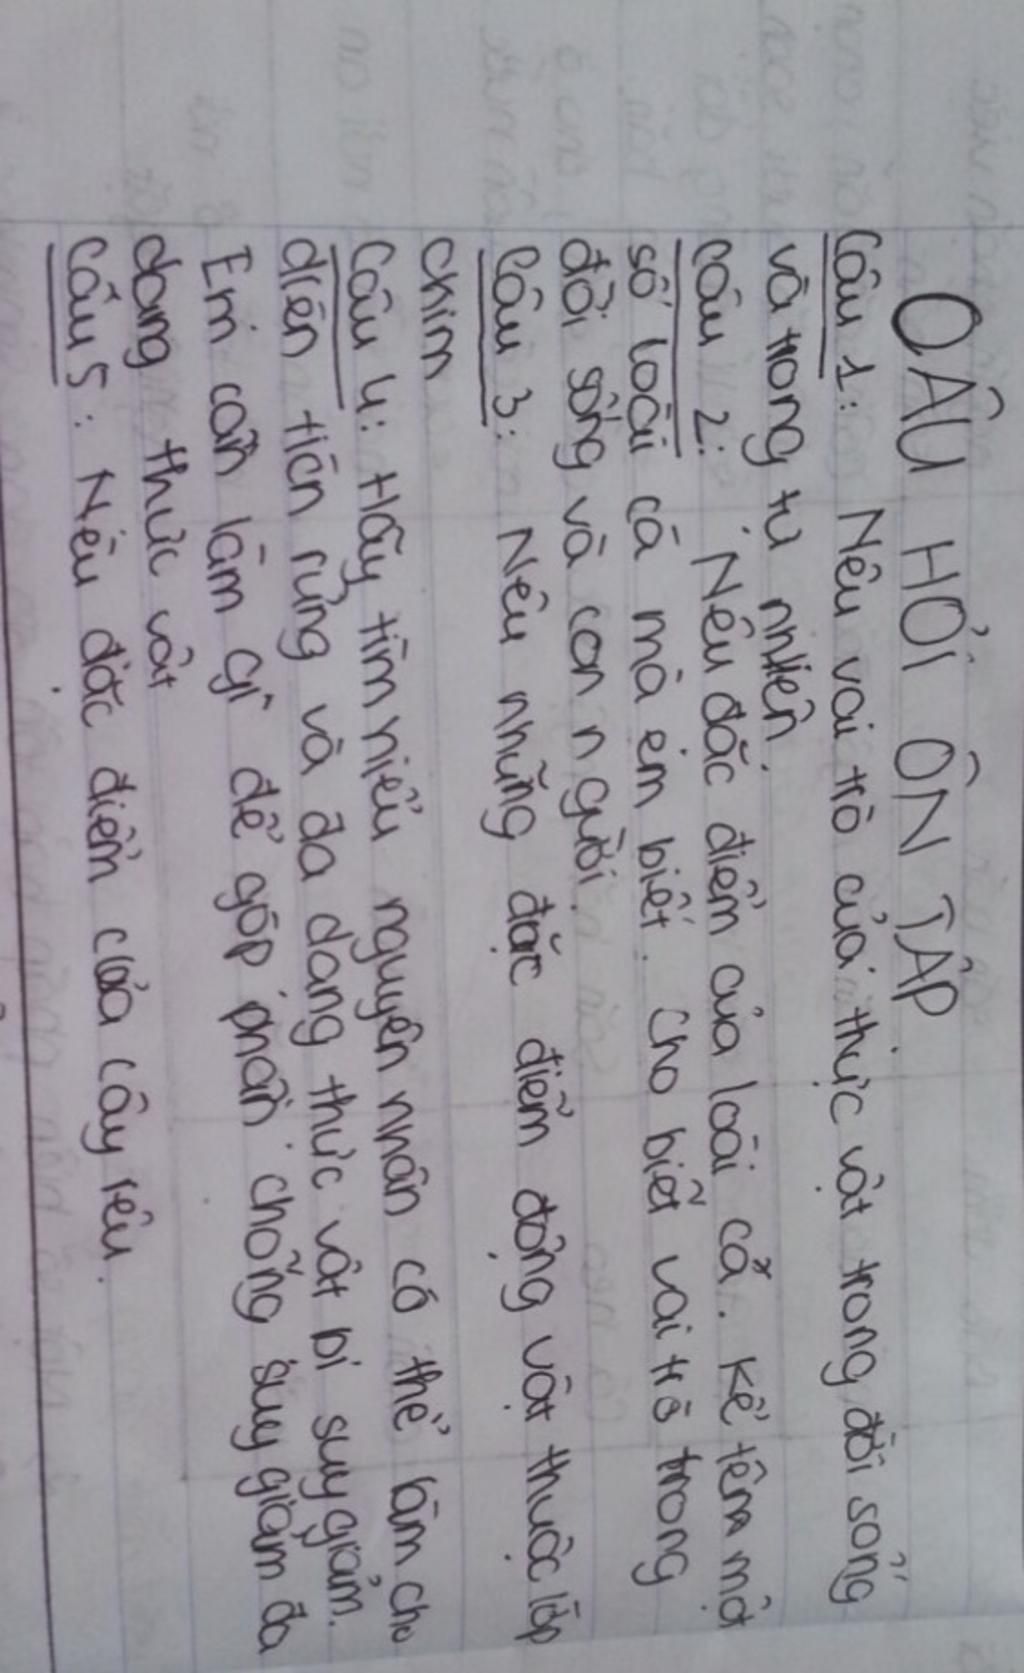 CÂU HỎI ÔN TẬP
Câu 1: Nêu vai trò của thực vật trong đời sống
và trong tự nhiên.
Câu 2: Nêu đặc điểm của loài cá. Kể tên một
số loài cá mà em biết. Cho biết vai trò trong
đời sống và con người.
Câu 3: Nêu những đặc điểm động vật thuộc lớp
chim
Câu 4: Hãy tìm hiểu nguyên nhân có thể làm cho
diện tích rừng và đa dạng thực vật bị suy giảm.
Em cần làm gì để góp phần chống suy giảm đa
dạng thực vật
Câu 5: Nêu đặc điểm của cây rêu.